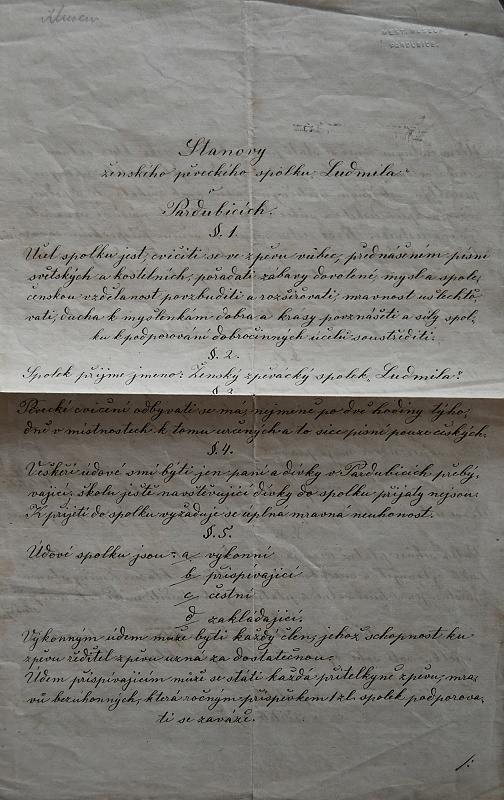 Museu
MĚST. MUSEUM
PARDUBICE.
Stanovy
ženského pěveckého spolku „Ludmila“
v
Pardubicích.
§. 1.
Účel spolku jest, cvičiti se ve zpěvu vůbec, přednášením písní
světských a kostelních, pořádati zábavy dovolené, mysl a spole-
čenskou vzdělanost povzbuditi a rozšiřovati, mravnost ušlechťo-
vati, ducha k myšlenkám dobra a krásy povznášeti a síly spol-
ku k podporování dobročinných účelů soustřediti.
§. 2.
Spolek přijme jmeno: Ženský zpěvácký spolek „Ludmila“.
§. 3.
Pěvecké cvičení odbývati se má nejméně po dvě hodiny týho-
dně v místnostech k tomu určených a to sice písně pouze českých.
§. 4.
Veškeří údové smí býti jen paní a dívky v Pardubicích přebý-
vající, školu ještě navštěvující dívky do spolku přijaty nejsou.
K přijetí do spolku vyžaduje se úplná mravná neúhonost.
§. 5.
Údové spolku jsou: a, výkonní
b, přispívající
c, čestní
d, zakládající.
Výkonným údem může býti každý člen, jehož schopnost ku
zpěvu ředitel zpěvu uzná za dostatečnou.
Údem přispívajícím může se státi každá přítelkyně zpěvu, mra-
vů bezúhonných, která ročným příspěvkem 1 zl. spolek podporova-
ti se zaváže.